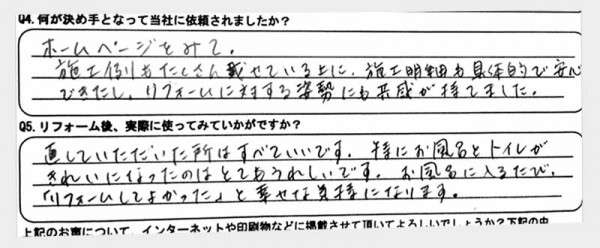 Q4. 何が決め手となって当社に依頼されましたか？
ホームページをみて。
施工例もたくさん載せている上に、施工明細も具体的で安心
できたし、リフォームに対する姿勢にも共感が持てました。
Q5. リフォーム後、実際に使ってみていかがですか？
直していただいた所はすべていいです。特にお風呂とトイレが
きれいになったのはとてもうれしいです。お風呂に入るたび、
「リフォームしてよかった」と幸せな気持になります。
上記のお声について、インターネットや印刷物などに掲載させて頂いてよろしいでしょうか？下記の中